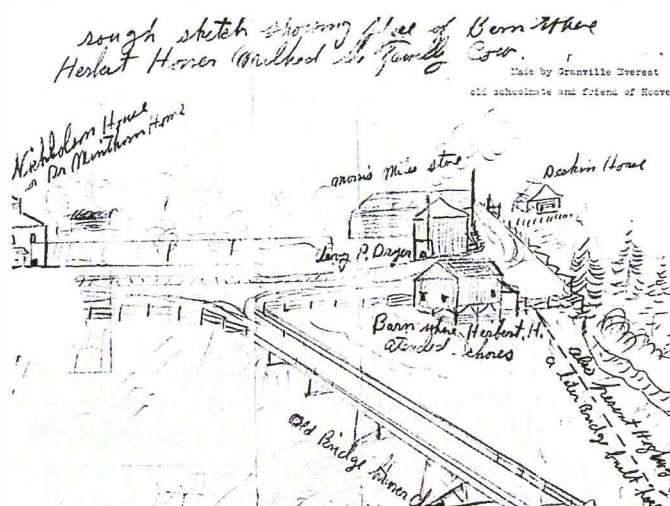 rough sketch showing place of Barn where
Herbert Hoover Milked the Family Cow.
Made by Granville Everest
old schoolmate and friend of Hoove
Nichholson House
or Dr Minthorn Home
Morris Mills store
Deskin House
P. Dryer
Barn where Herbert. H.
atended chores
Old Bridge
also present Highway
a later Bridge built